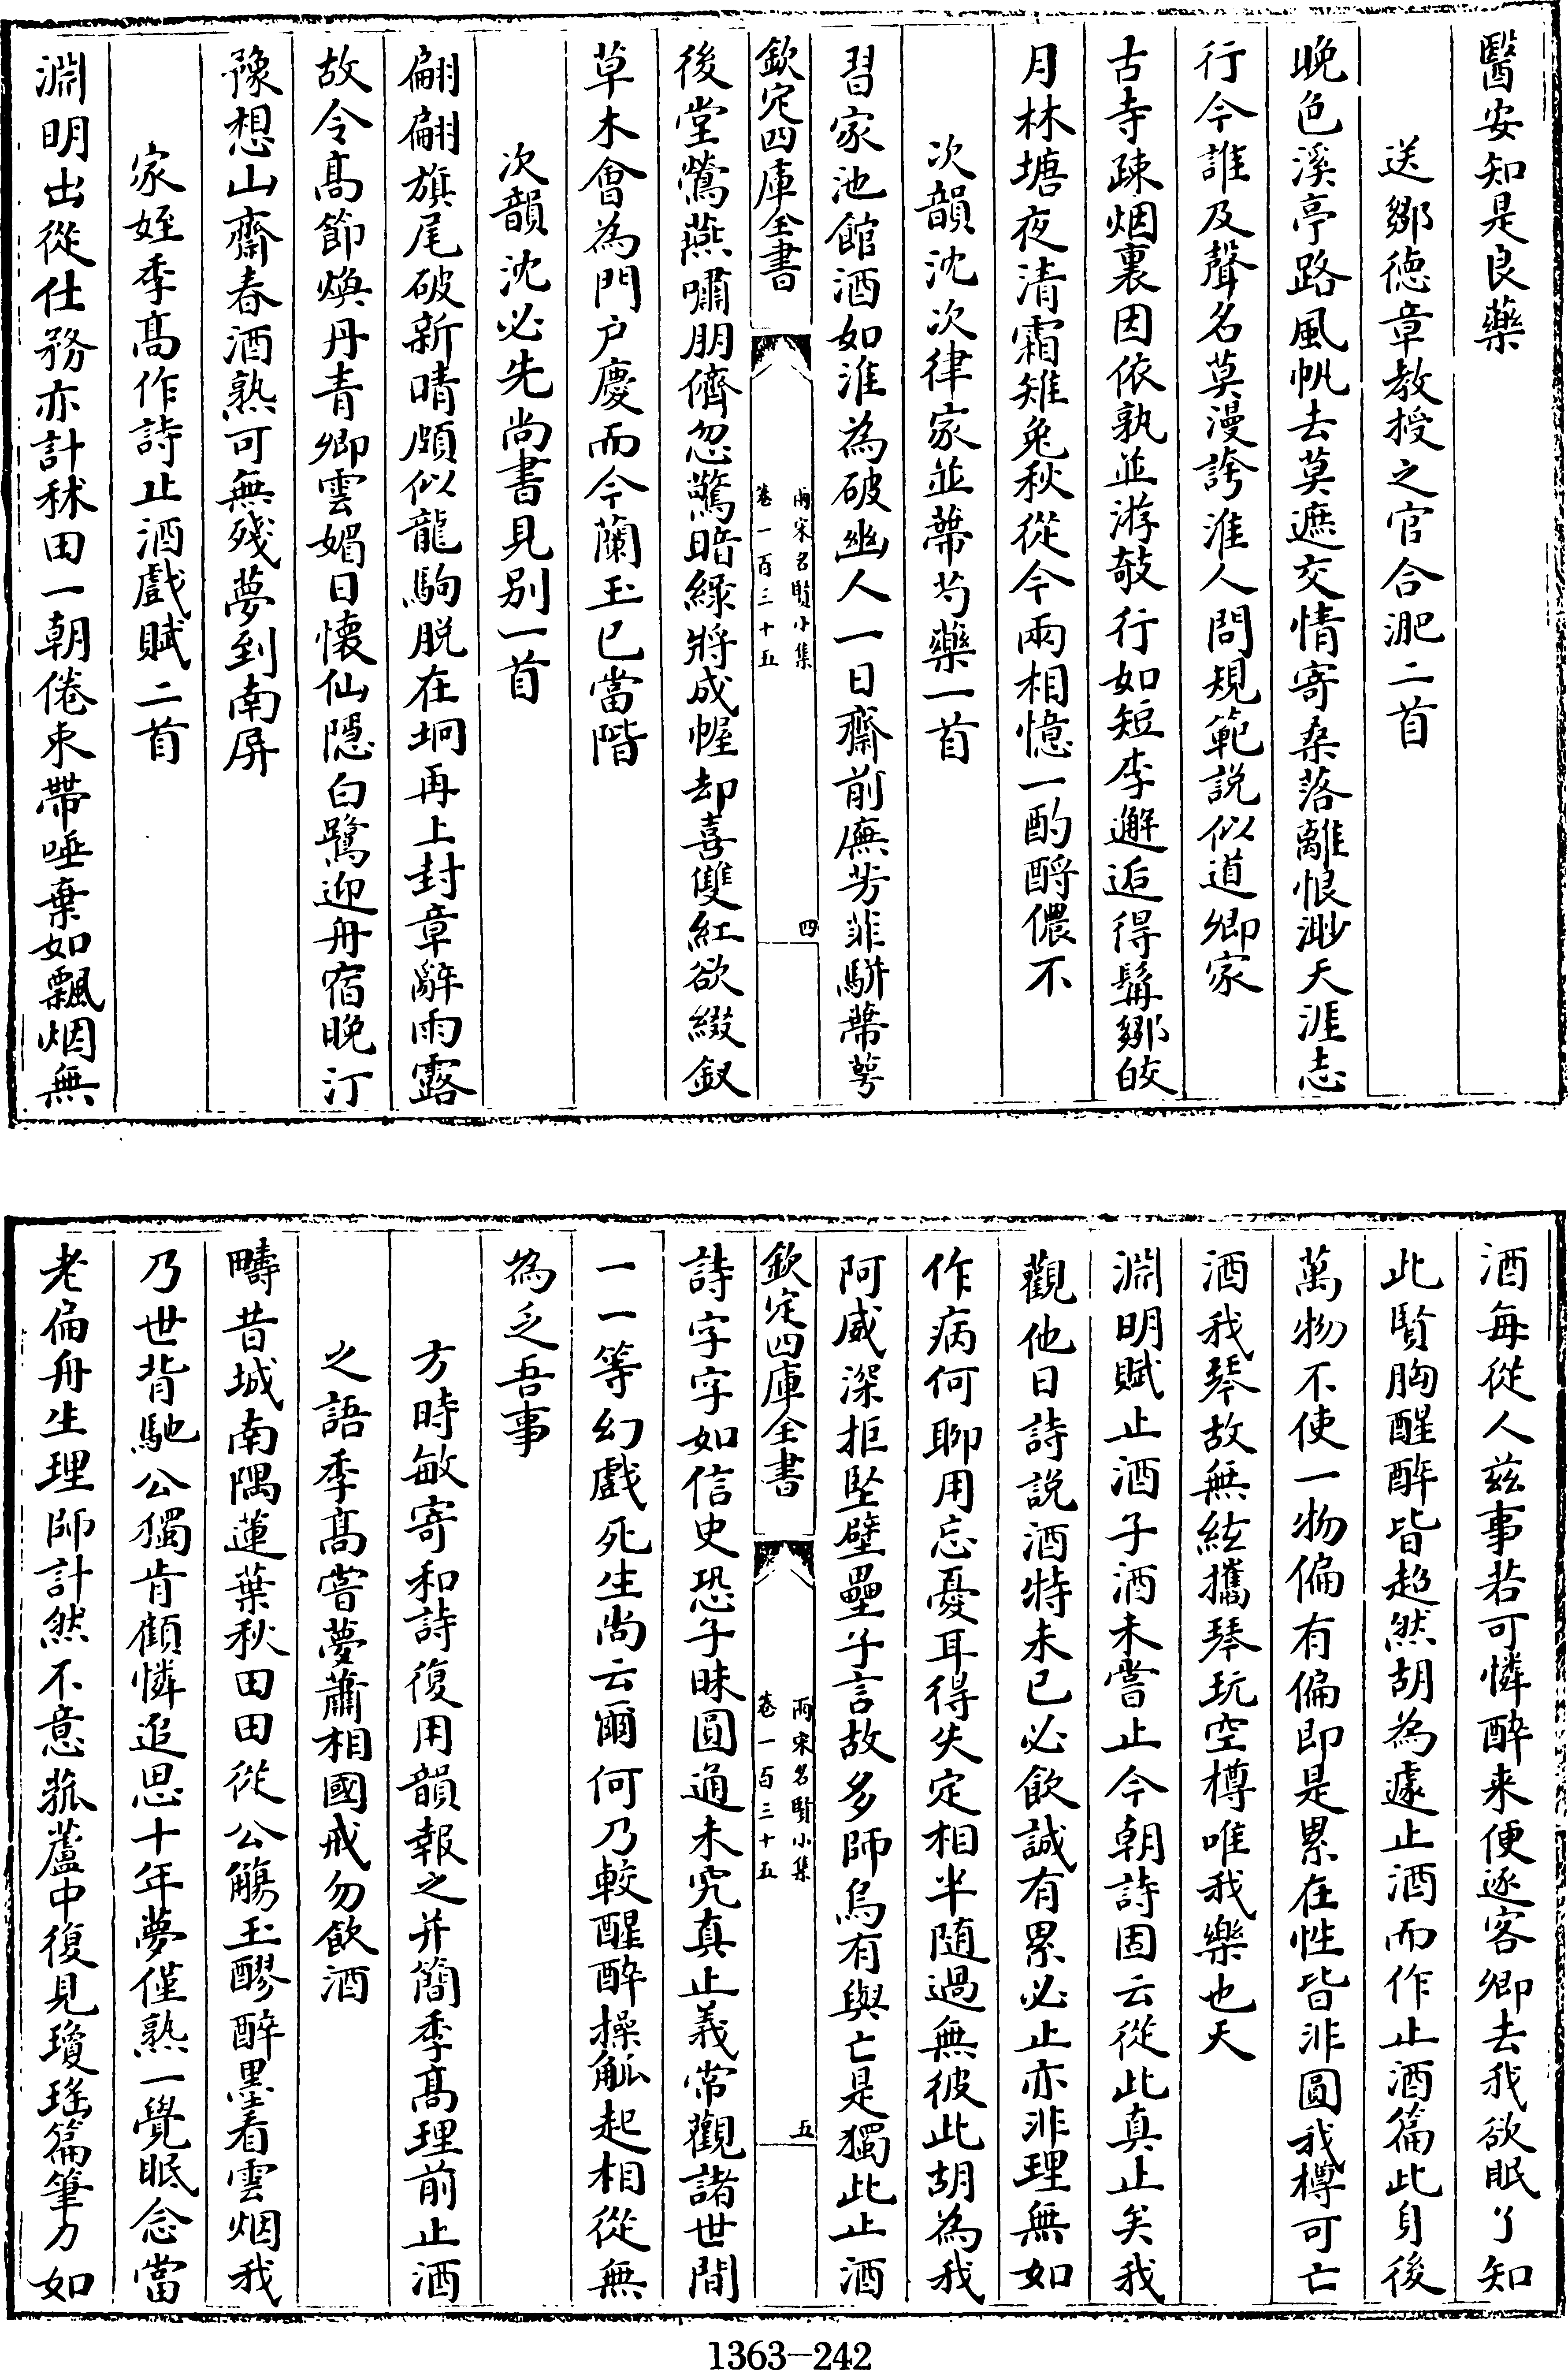 醫安知是良藥
送鄒徳章教授之官合淝二首
晚色溪亭路風帆去莫遮交情寄桑落離恨渺天涯志
行今誰及聲名莫漫誇淮人問規範説似道卿家
古寺疎烟裏因依孰並游敲行如短李邂逅得髯鄒皎
月林塘夜清霜雉兔秋從今兩相憶一酌酹儂不
次韻沈次律家並蔕芍藥一首
習家池館酒如淮為破幽人一日齋前廡芳菲駢蔕萼
欽定四庫全書
兩宋名賢小集
卷一百三十五
四
後堂鶯燕嘯朋儕忽驚暗綠將成幄却喜雙紅欲綴釵
草木會為門户慶而今蘭玉已當階
次韻沈必先尚書見别一首
翩翩旗尾破新晴頗似龍駒脱在坰再上封章辭雨露
故令髙節煥丹青卿雲媚日懷仙隱白鷺迎舟宿晚汀
豫想山齋春酒熟可無殘夢到南屏
家姪季髙作詩止酒戲賦二首
淵明出從仕務亦計秫田一朝倦束帶唾棄如飄烟無
酒每從人兹事若可憐醉来便逐客卿去我欲眠了知
此賢胸醒醉皆超然胡為遽止酒而作止酒篇此身後
萬物不使一物偏有偏即是累在性皆非圓我樽可亡
酒我琴故無絃攜琴玩空樽唯我樂也天
淵明賦止酒子酒未嘗止今朝詩固云從此真止矣我
觀他日詩説酒特未已必飲誠有累必止亦非理無如
作病何聊用忘憂耳得失定相半随過無彼此胡為我
阿咸深拒堅壁壘子言故多師烏有與亡是獨此止酒
欽定四庫全書
兩宋名賢小集
卷一百三十五
五
詩字字如信史恐子昧圓通未究真止義常觀諸世間
一一等幻戲死生尚云爾何乃較醒醉操觚起相從無
為乏吾事
方時敏寄和詩復用韻報之并簡季髙理前止酒
之語季髙嘗夢蕭相國戒勿飲酒
疇昔城南隅蓮葉秋田田從公觴玉醪醉墨看雲烟我
乃世背馳公獨肯顧憐追思十年夢僅熟一覺眠念當
老扁舟生理師計然不意菰蘆中復見瓊瑤篇筆力如
1363-242